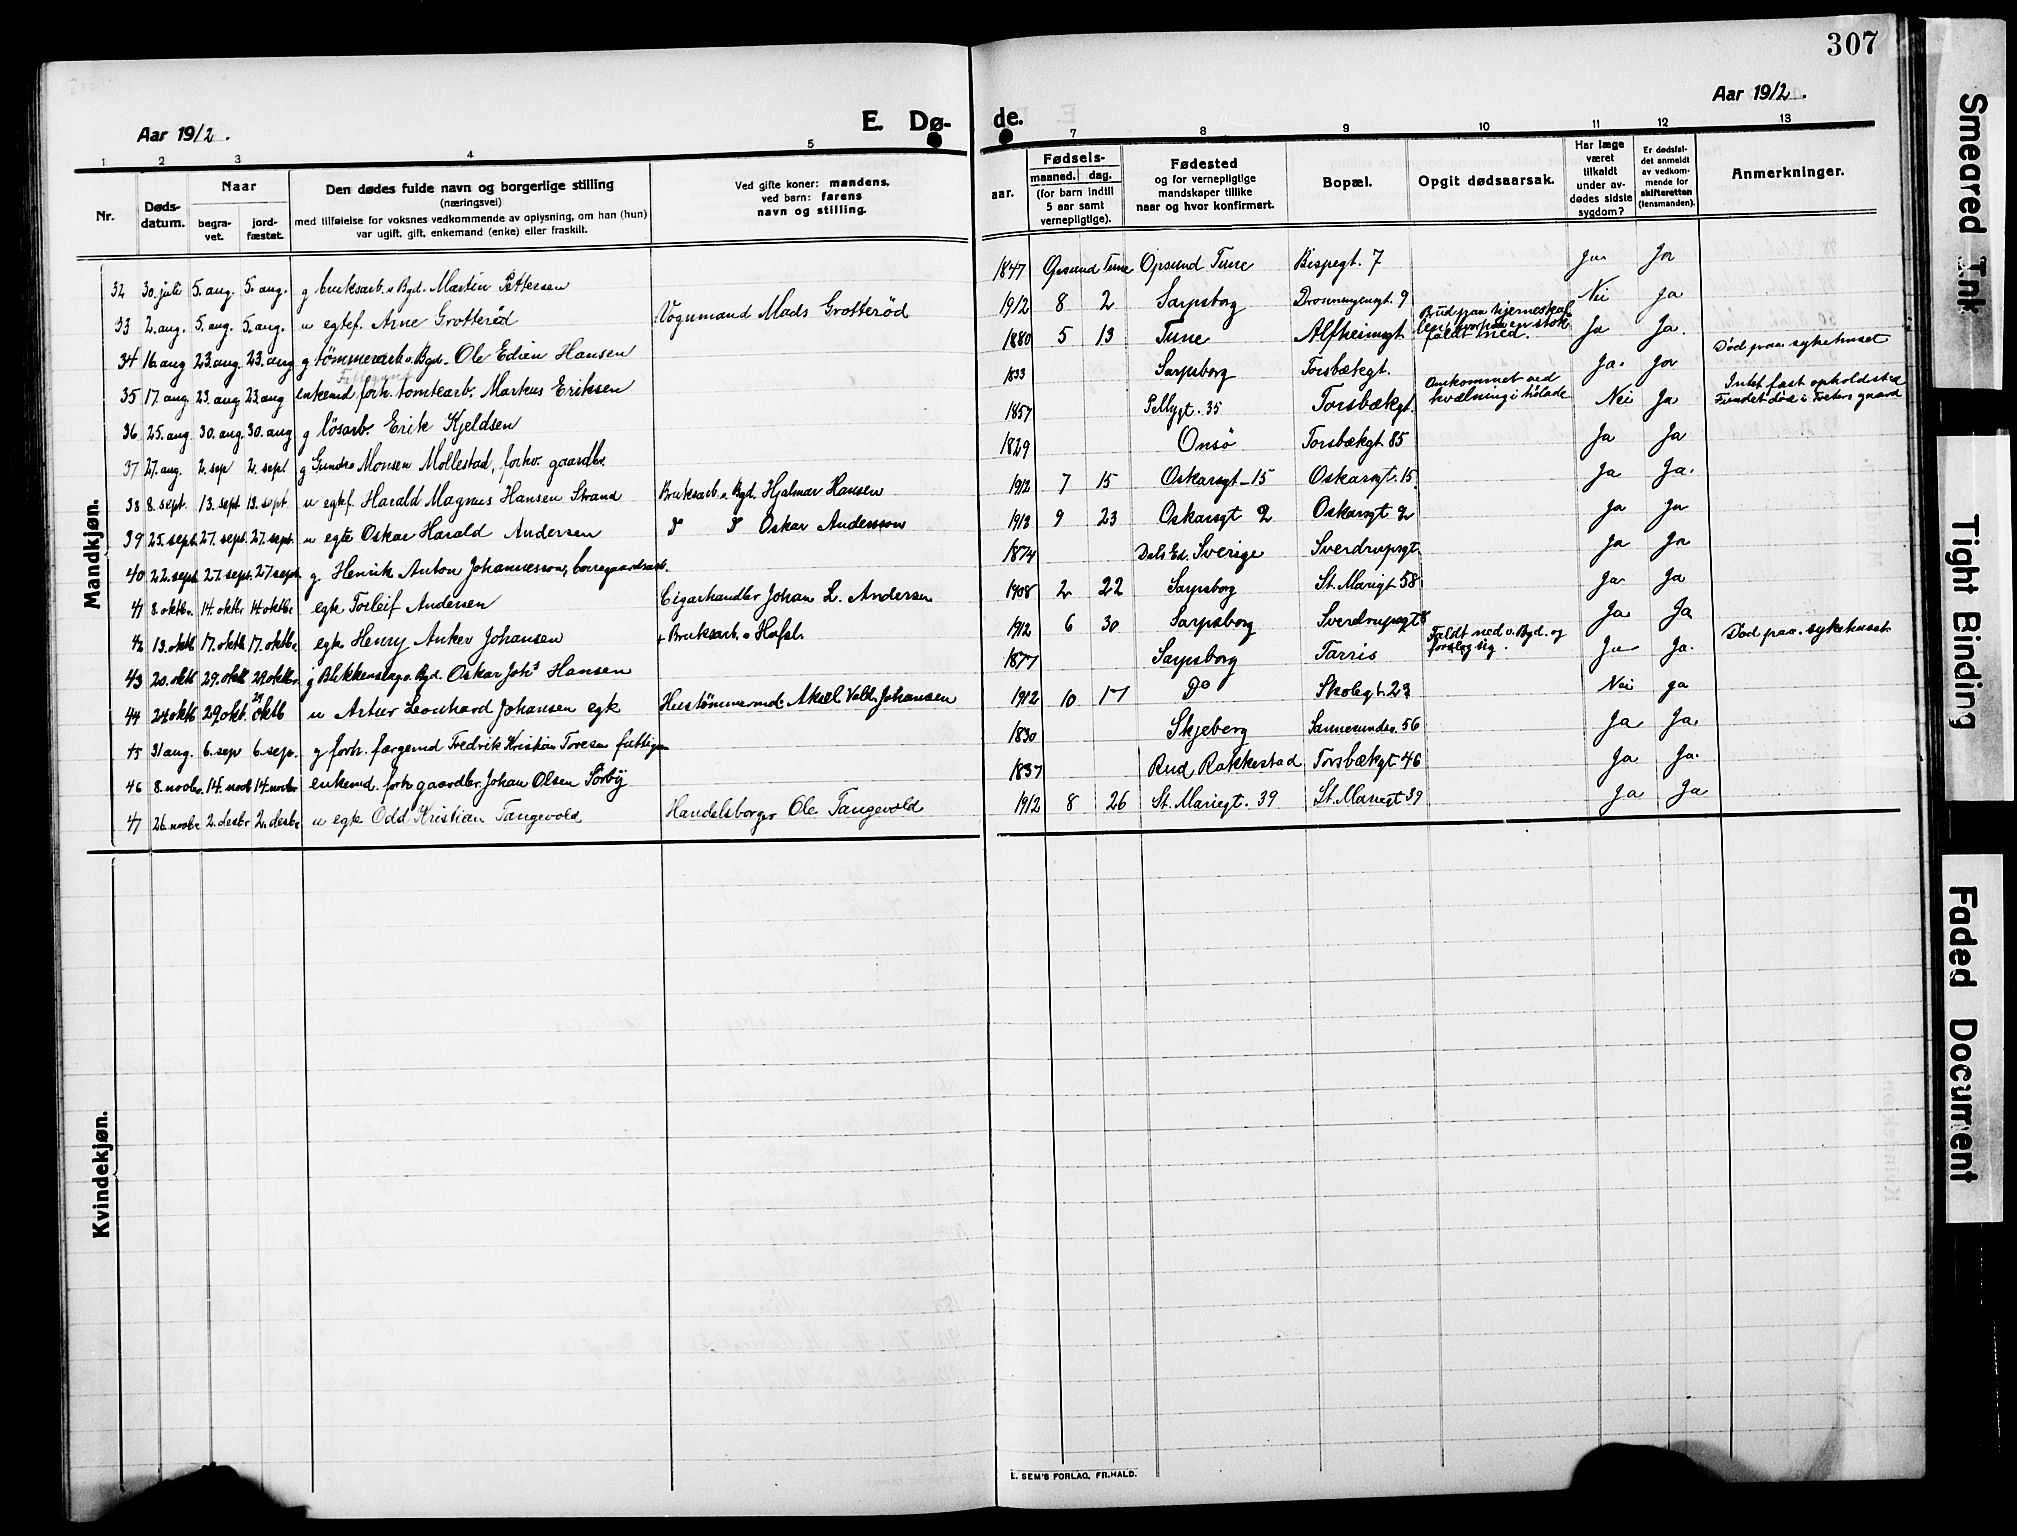 307
Aar 1912.
E. Dø-
de.
Aar 1912.
1 2 3 4 5
7 8 9 10 11 12 13
Nr.
Døds-
datum.
Naar
begra-
vet.
jord-
fæstet.
Den dødes fulde navn og borgerlige stilling
(næringsvei)
med tilføielse for voksnes vedkommende av oplysning, om han (hun)
var ugift, gift, enkemand (enke) eller fraskilt.
Ved gifte koner: mandens,
ved barn: farens
navn og stilling.
Fødsels-
aar. maaned. dag.
(for barn indtil
5 aar samt
vernepligtige).
Fødested
og for vernepligtige
mandskaper tillike
naar og hvor konfirmert.
Bopæl.
Opgit dødsaarsak.
Har læge
været
tilkaldt
under av-
dødes sidste
sygdom?
Er dødsfal-
det anmeldt
av vedkom-
mende for
skifteretten
(lensmanden).
Anmerkninger.
Mandkjøn.
32 30. juli 5. aug. 5. aug. g bruksarb. v Bgd. Martin Pettersen 1847 Opsund Tune Opsund Tune Bispegt. 7 Ja Ja
33 2. aug. 5. aug. 5. aug. u egtef. Arne Grotterød Vognmand Mads Grotterød 1912 8 2 Sarpsborg Dronningensgt. 9 Nei Ja
34 16. aug 23. aug. 23. aug g tømmerarb. v. Bgd. Ole Edien Hansen 1880 5 13 Tune Alfheimgt. Brud paa hjerneskal
len, en stok
faldt ned. Ja Ja. Død paa sykehuset
35 17. aug. 23. aug 23. aug enkemd forh. tomtearb. Markus Eriksen 1833 Sarpsborg Torsbækgt. Ja. Ja
36 25. aug. 30. aug. 30. aug g løsarb. Erik Kjeldsen 1857 Pellygt. 35 Torsbækgt. Omkommet ved
kvælning i hølade Nei Ja Intet fast opholdsted
Fundet død i gaard
37 27. aug. 2. sep 2. sept g Gundro Monsen Møllestad, forhv. gaardbr. 1829 Onsø Torsbækgt. 85 Ja Ja
38 8. sept. 13. sept 13. sept u egtef. Harald Magnus Hansen Strand Bruksarb. v. Bgd. Hjalmar Hansen 1912 7 15 Oskarsgt. 15 Oskarsgt. 15 Ja Ja.
39 25. sept. 27. sept. 27. sept. u egte Oskar Harald Andersen Oskar Andersson 1912 9 23 Oskarsgt 2 Oskarsgt 2 Ja Ja
40 22. sept. 27. sept. 27. sept g Henrik Anton Johannesson, borregaardsarb. 1874 Dals Ed. Sverige Sverdrupsgt. Ja Ja
41 8. oktbr. 14. oktbr 14 oktbr egte Torleif Andersen Cigarhandler Johan L. Andersen 1908 2 22 Sarpsborg St. Marigt 58 Ja Ja
42 13. oktb 17. oktb 17. oktbr. egte Henry Anker Johansen + Bruksarb. v Hafsl. 1912 6 30 Sarpsborg Sverdrupsgt 8 Ja Ja
43 20. oktb 29. oktb 29. oktbr. g Blikkenslag. v. Bgd. Oskar Johs Hansen 1877 Sarpsborg Tarris Faldt ned v. Bgd. og
forslog sig. Ja Ja. Død paa sykehuset
44 24 oktb 29 okt. 29 oktb u Artur Leonhard Johansen egte Hustømmermd. Aksel Valdr. Johansen 1912 10 17 Do Skolegt. 23 Nei Ja
45 31 aug. 6. sep 6. sep. g forh. fargemd Fredrik Kristian Toresen fattigm 1830 Skjeberg Sannesundsv. 56 Ja Ja.
46 8. novbr. 14. novb 14. novbr enkemd. forhv gaardbr Johan Olsen Sørby 1837 Rud Rakkestad Torsbækgt. 46 Ja Ja.
47 26. novbr 2. desbr 2. desbr u egte Odd Kristian Tangevold Handelsborger Ole Tangevold 1912 8 26 St. Mariegt. 39 St. Mariegt 39 Ja Ja
Kvindekjøn.
E. SEM'S FORLAG, FR.HALD.
Smeared Ink
Tight Binding
Faded Document